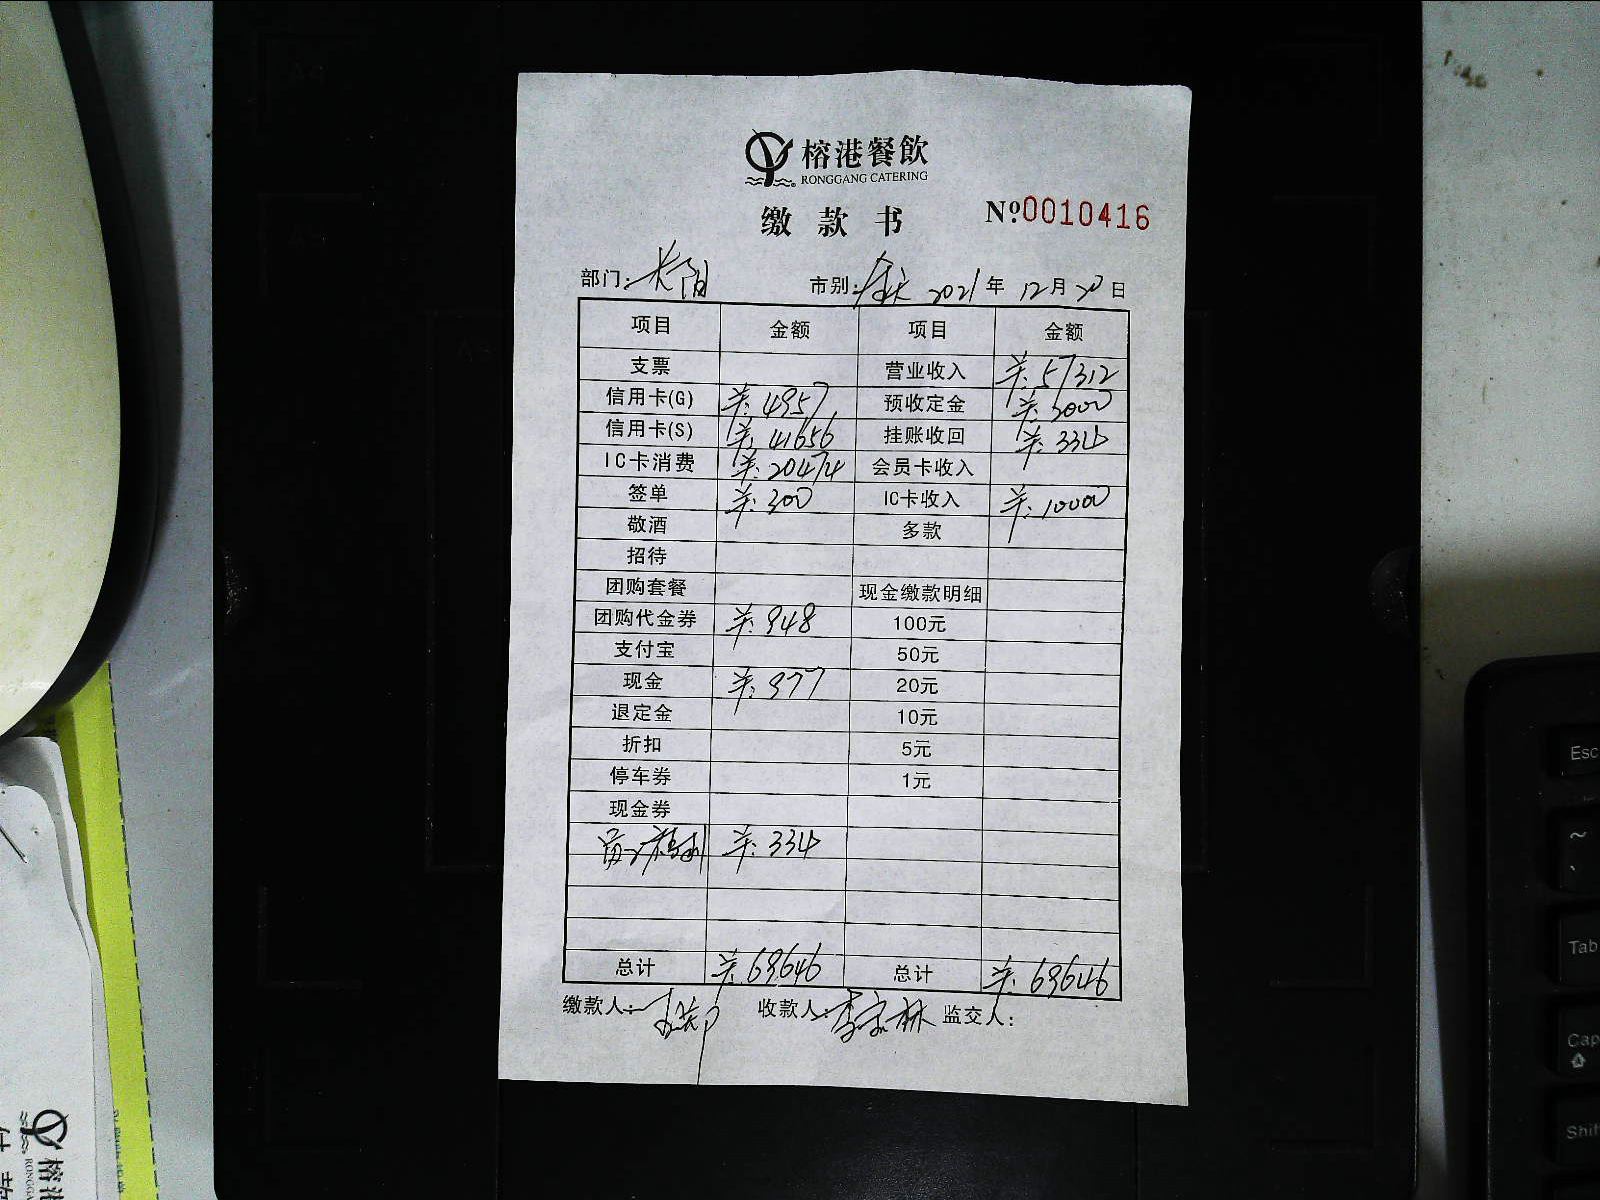 榕港餐飲
RONGGANG CATERING
缴款书
Nº0010416
部门:长阳 市别:全天 2021年12月20日
项目 金额 项目 金额
支票 营业收入 ¥:57312
信用卡(G) ¥:4957 预收定金 ¥:2000
信用卡(S) ¥:41656 挂账收回 ¥:334
IC卡消费 ¥:20474 会员卡收入
签单 ¥:300 IC卡收入 ¥:10000
敬酒 多款
招待
团购套餐 现金缴款明细
团购代金券 ¥:948 100元
支付宝 50元
现金 ¥:977 20元
退定金 10元
折扣 5元
停车券 1元
现金券
¥:334
总计 ¥:69646 总计 ¥:69646
缴款人: 收款人: 监交人:
Esc
~
Tab
Cap
Shif
榕港